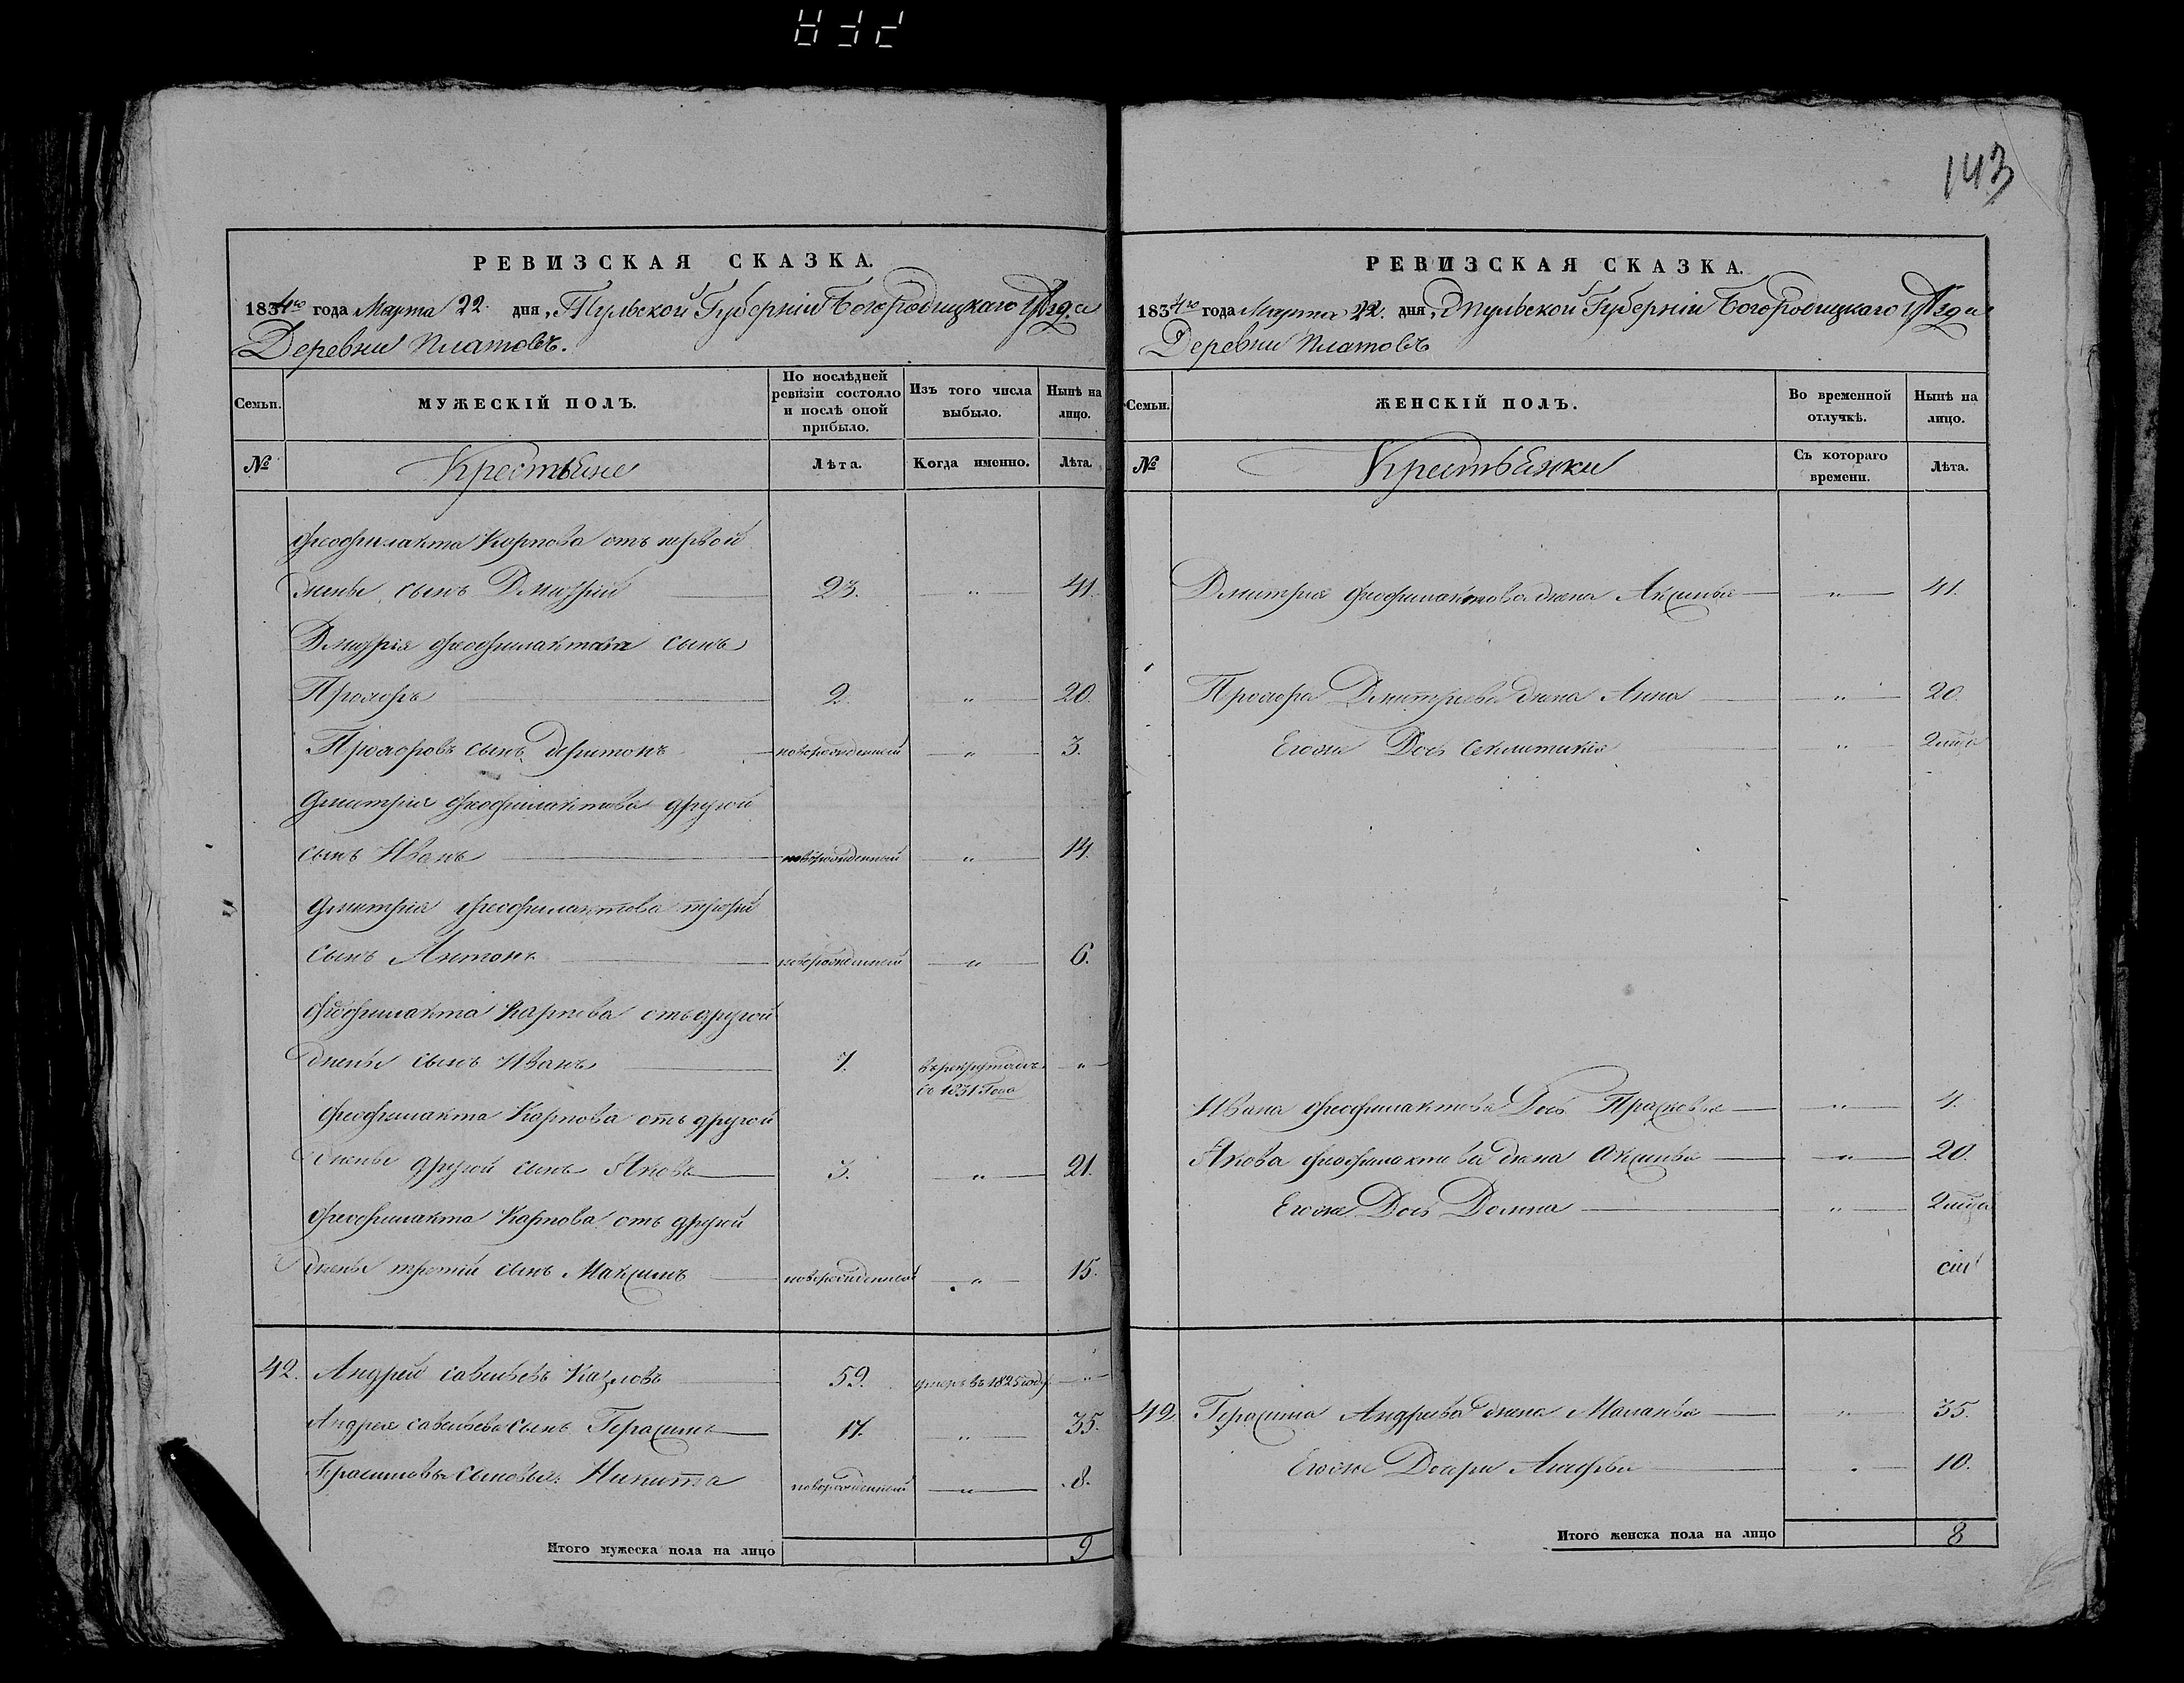 143
РЕВИЗСКАЯ СКАЗКА.
1834го года Марта 22. дня, Тульской Губерніи Богородицкаго Уѣзда
Деревни Платовъ.
Семьи.
МУЖЕСКІЙ ПОЛЪ.
По послѣдней ревизіи состояло и послѣ оной прибыло.
Изъ того числа выбыло.
Нынѣ на лицо.
№
Крестьяне
Лѣта.
Когда именно.
Лѣта.
Феофилакта Карпова отъ первой
жены сынъ Дмитрій 23. " 41.
Дмитрія Феофилактова сынъ
Прохоръ 2. " 20.
Прохоровъ сынъ новорожденный " 3.
Дмитрія Феофилактова другой
сынъ Иванъ новорожденный " 14.
Дмитрія Феофилактова третій
сынъ Антонъ новорожденный " 6.
Феофилакта Карпова отъ другой
жены сынъ Иванъ 7. въ рекрутахъ "
съ 1831 Года
Феофилакта Карпова отъ другой
жены другой сынъ Яковъ 3. " 21.
Феофилакта Карпова отъ другой
жены третій сынъ Максимъ новорожденный " 15.
42. Андрей Савельевъ Казловъ 59. умеръ въ 1825 году "
Андрея Савельева сынъ Герасимъ 17. " 35.
Герасимовы сыновья: Никита новорожденный " 8.
Итого мужеска пола на лицо 9
РЕВИЗСКАЯ СКАЗКА.
1834го года Марта 22. дня, Тульской Губерніи Богородицкаго Уѣзда
Деревни Платовъ
Семьи.
ЖЕНСКІЙ ПОЛЪ.
Во временной отлучкѣ.
Нынѣ на лицо.
№
Крестьянки
Съ котораго времени.
Лѣта.
Дмитрія Феофилактова жена Аксинья " 41.
Прохора Дмитріева жена Анна " 20.
Егоже Дочь "
Ивана Феофилактова Дочь Прасковья " 4.
Якова Феофилактова жена Аксинья " 20.
Егоже Дочь Домна "
42. Герасима Андреева жена Маланья " 35.
Егоже Дочери Агафья " 10.
Итого женска пола на лицо 8